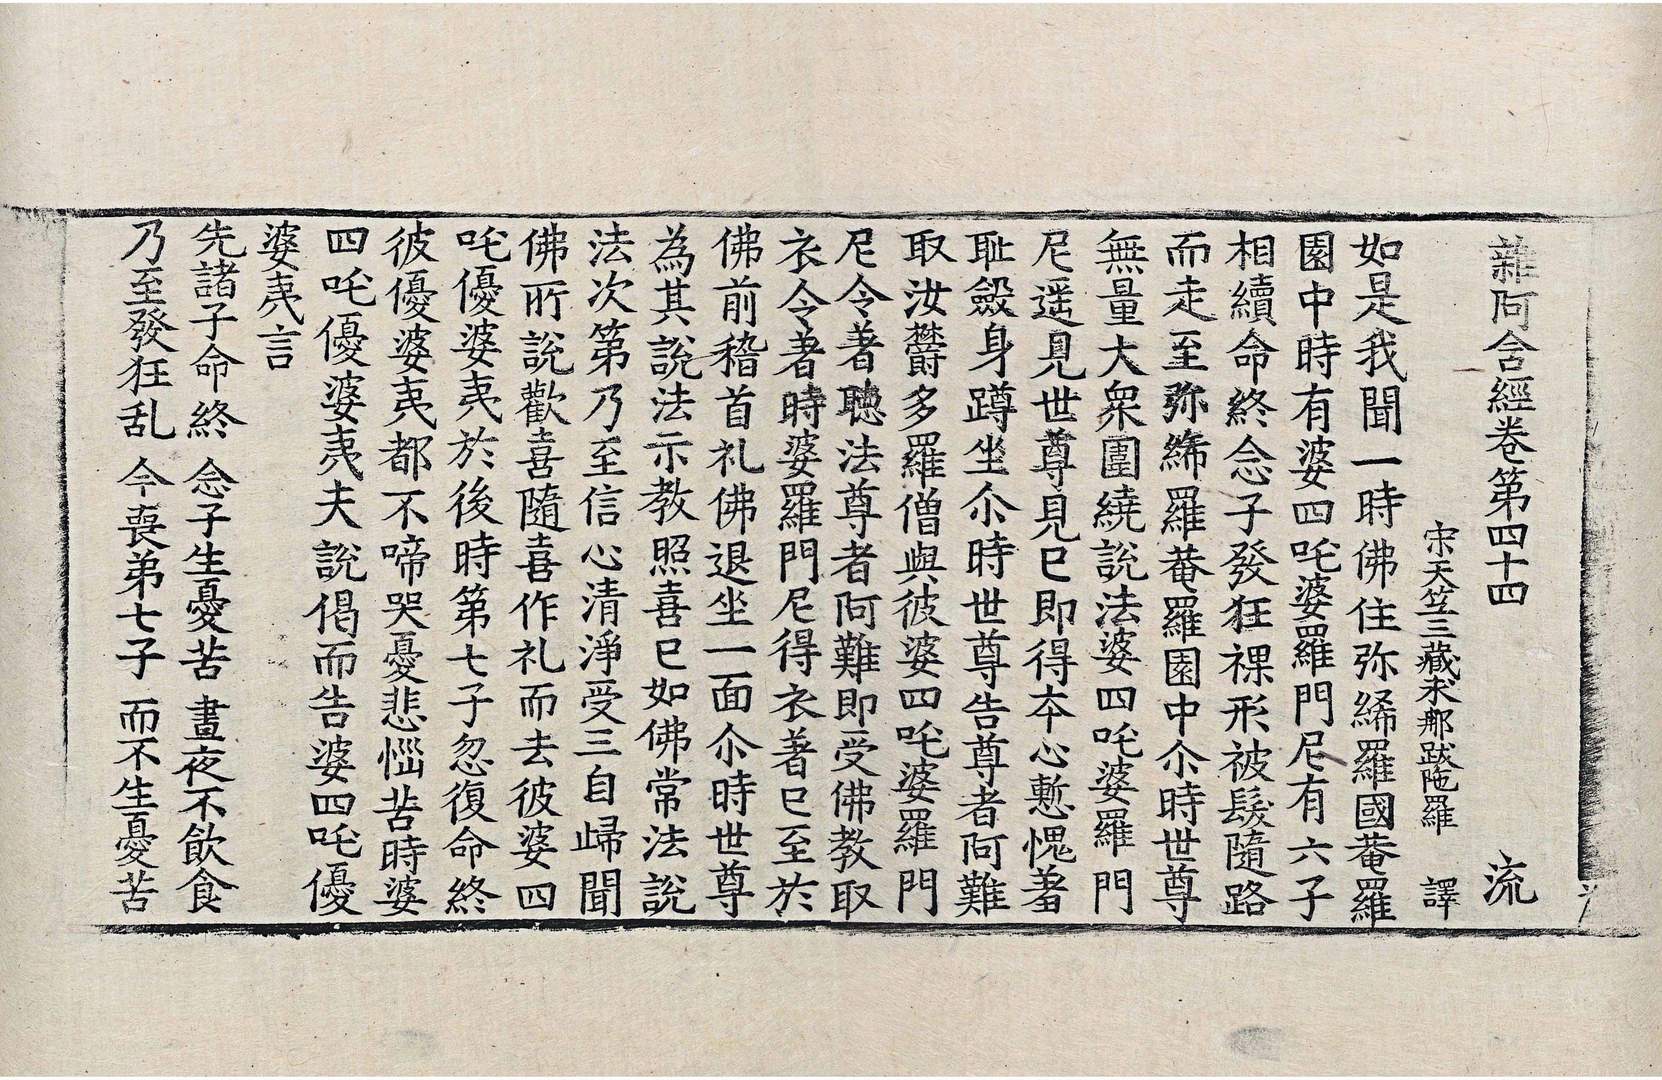 雜阿含經卷第四十四 流
宋天竺三藏求那跋陁羅 譯
如是我聞一時佛住弥絺羅國菴羅
園中時有婆四吒婆羅門尼有六子
相續命終念子發狂裸形被髮隨路
而走至弥絺羅菴羅園中尒時世尊
無量大衆圍繞說法婆四吒婆羅門
尼遥見世尊見已即得本心慙愧著
耻斂身蹲坐尒時世尊告尊者阿難
取汝欝多羅僧與彼婆四吒婆羅門
尼令著聽法尊者阿難即受佛教取
衣令著時婆羅門尼得衣著已至於
佛前稽首礼佛退坐一面尒時世尊
為其說法示教照喜已如佛常法說
法次第乃至信心清淨受三自歸聞
佛所說歡喜隨喜作礼而去彼婆四
吒優婆夷於後時第七子忽復命終
彼優婆夷都不啼哭憂悲惱苦時婆
四吒優婆夷夫說偈而告婆四吒優
婆夷言
先諸子命終 念子生憂苦 晝夜不飲食
乃至發狂乱 今喪弟七子 而不生憂苦